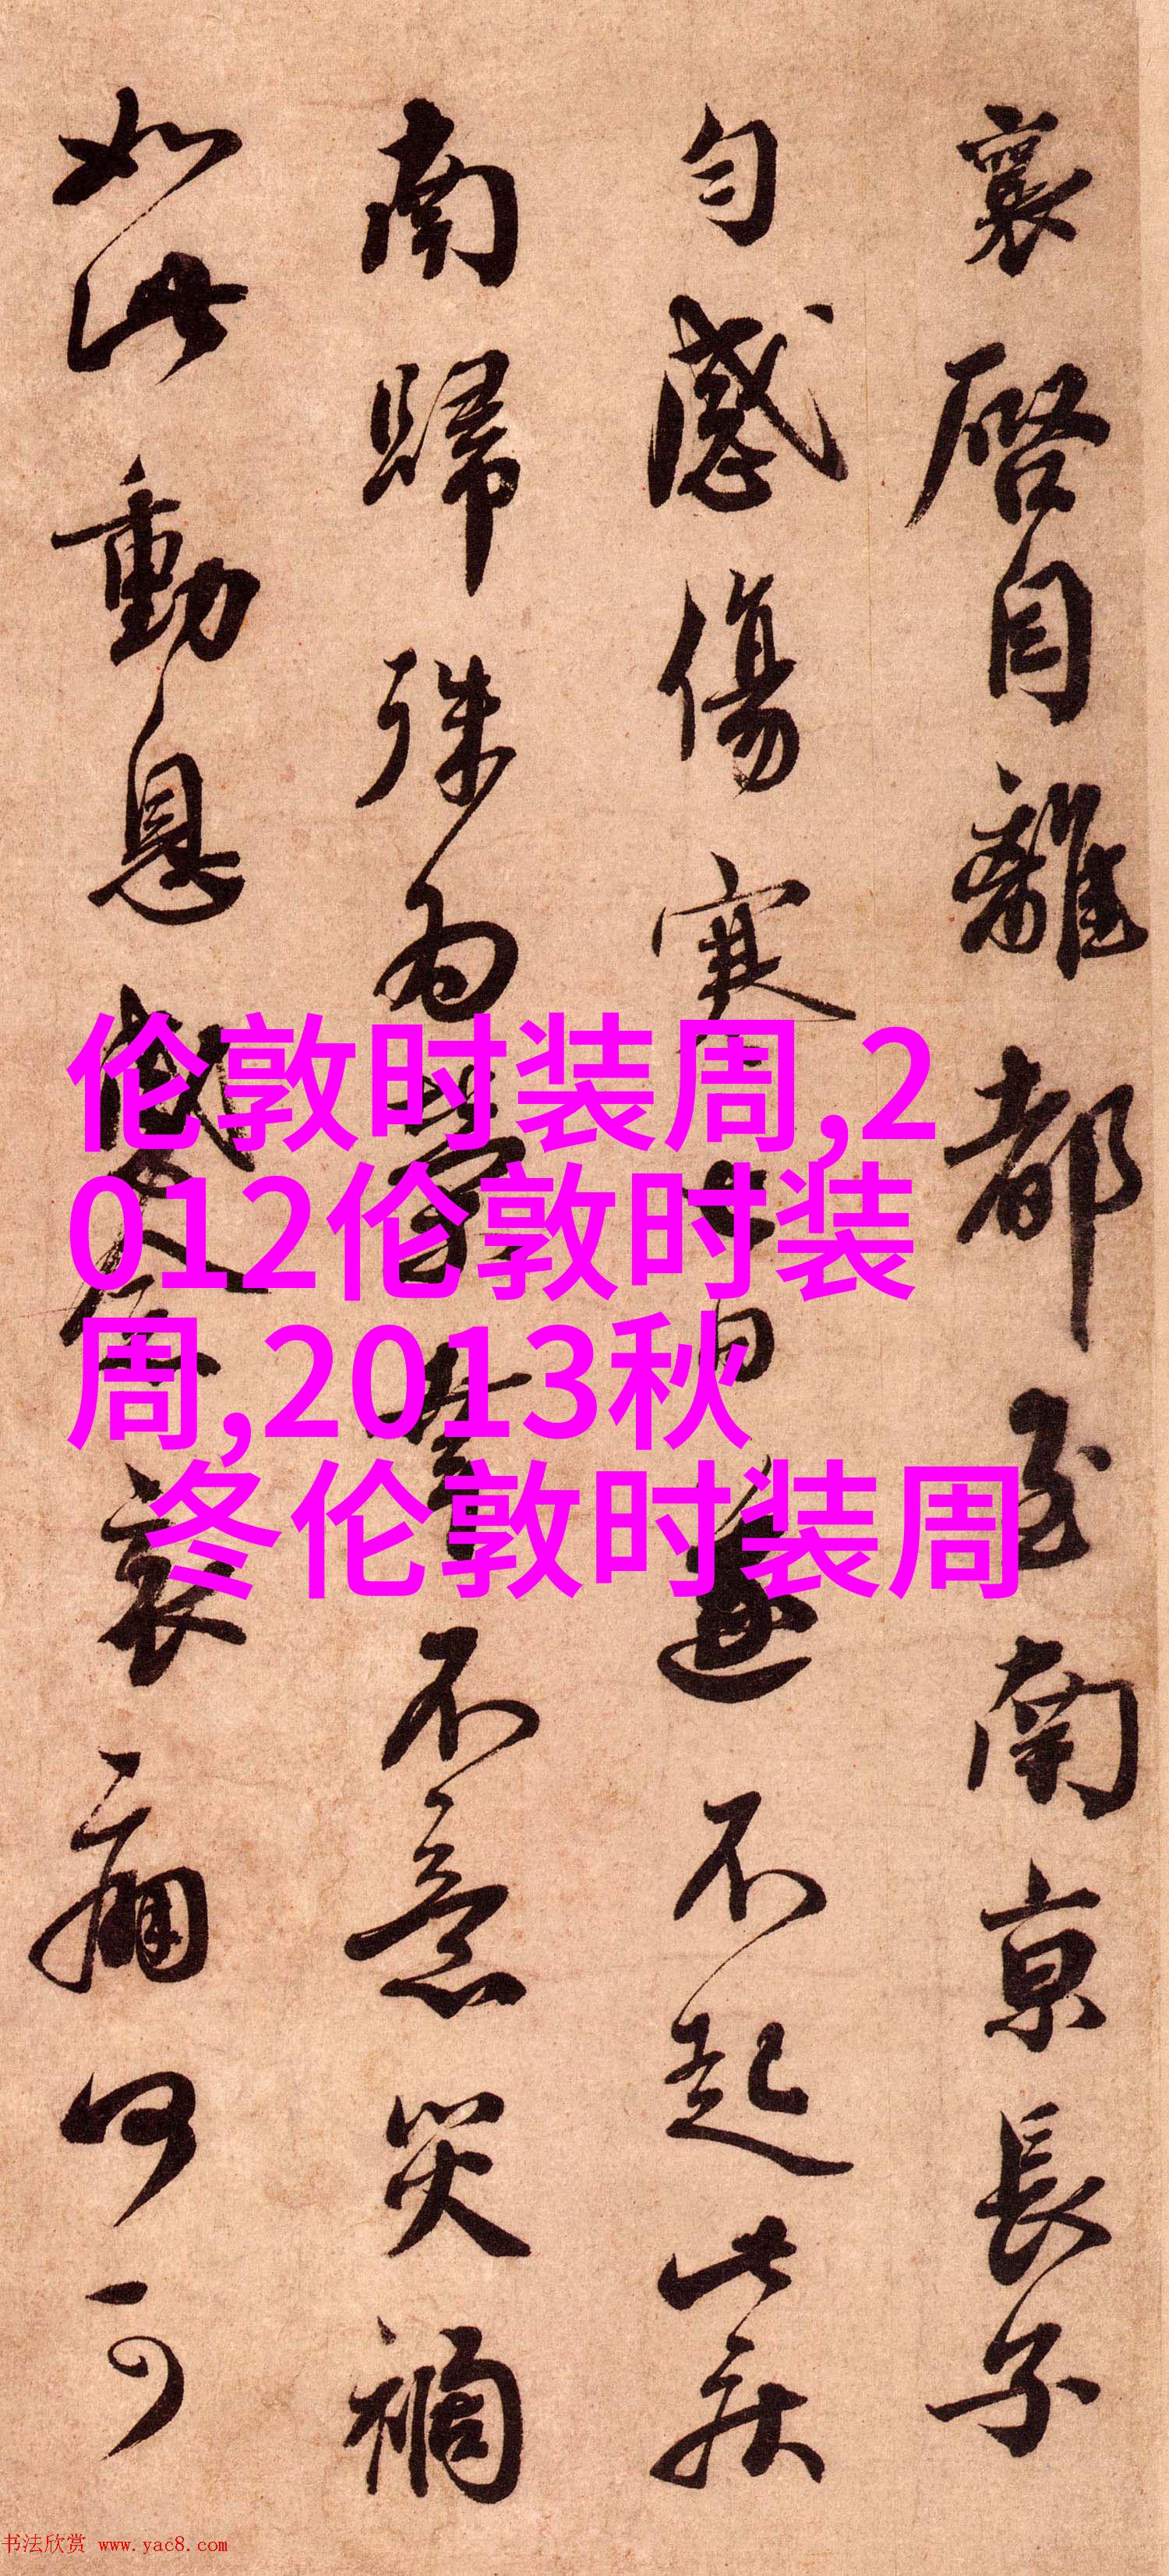 襄啓自離都至南京長子
匀感傷寒七日遂不起此疾
南歸殊為榮幸不意災禍
如此動息感念哀痛何可
伦敦时装周,2
012伦敦时装
周,2013秋
冬伦敦时装周
书法欣赏 www.yac8.com